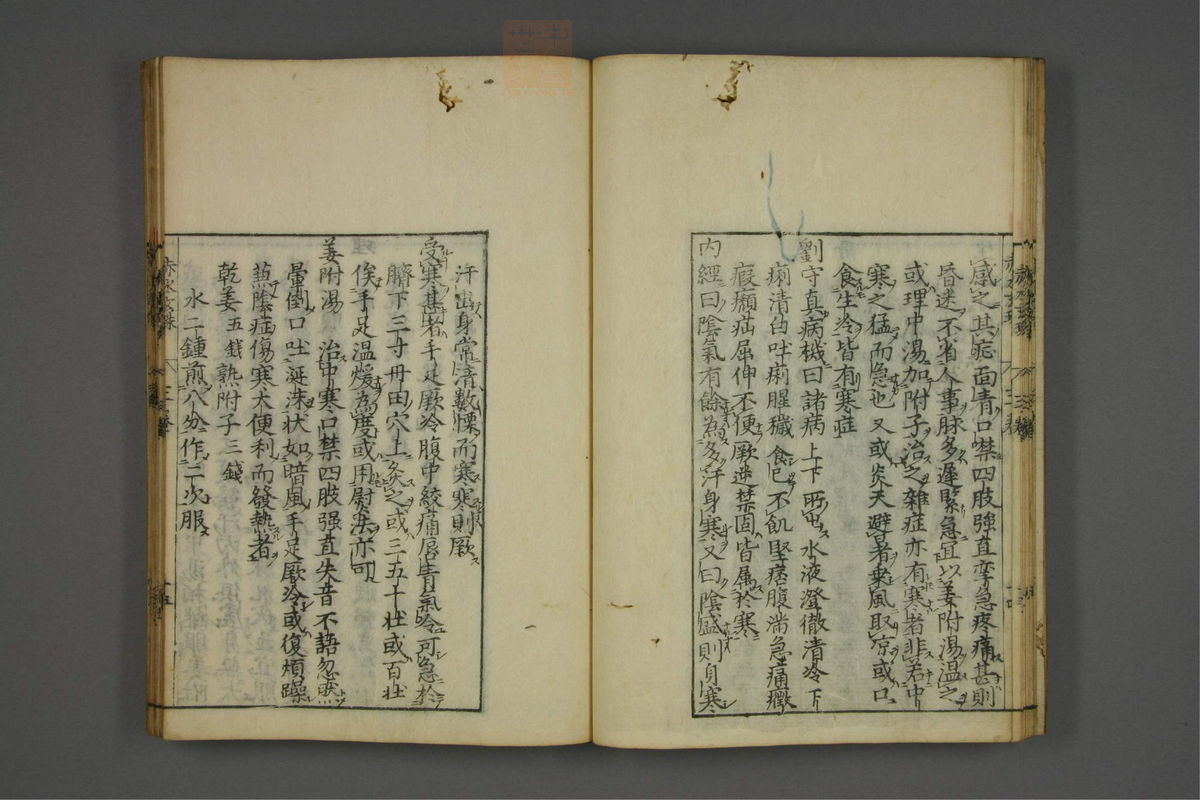 感之其症面青口噤四肢強直攣急疼痛甚則
昏迷不省人事脉多遲緊急宜以姜附湯溫之
或理中湯加附子治之雜症亦有寒者非若中
寒之猛而急也又或炎天避暑乘風取凉或口
食生冷皆有寒症
劉守真病機曰諸病上下所出水液澄徹清冷下
痢清白吐痢腥穢食已不飢堅痞腹滿急痛癥
瘕癩疝屈伸不便厥逆禁固皆属於寒
內經曰陰氣有餘為多汗身寒又曰陰盛則身寒
汗出身常清數慄而寒寒則厥
受寒甚者手足厥冷腹中絞痛唇青氣冷可急於
臍下三寸丹田穴上灸之或三五十壯或百壯
俟手足温煖為度或用熨法亦可
姜附湯 治中寒口禁四肢强直失音不語忽然
暈倒口吐涎沫状如暗風手足厥冷或復煩躁
𠀋陰症傷寒大便利而發熱者
乾姜五錢熟附子三錢
水二鍾煎八分作二次服
赤水玄珠